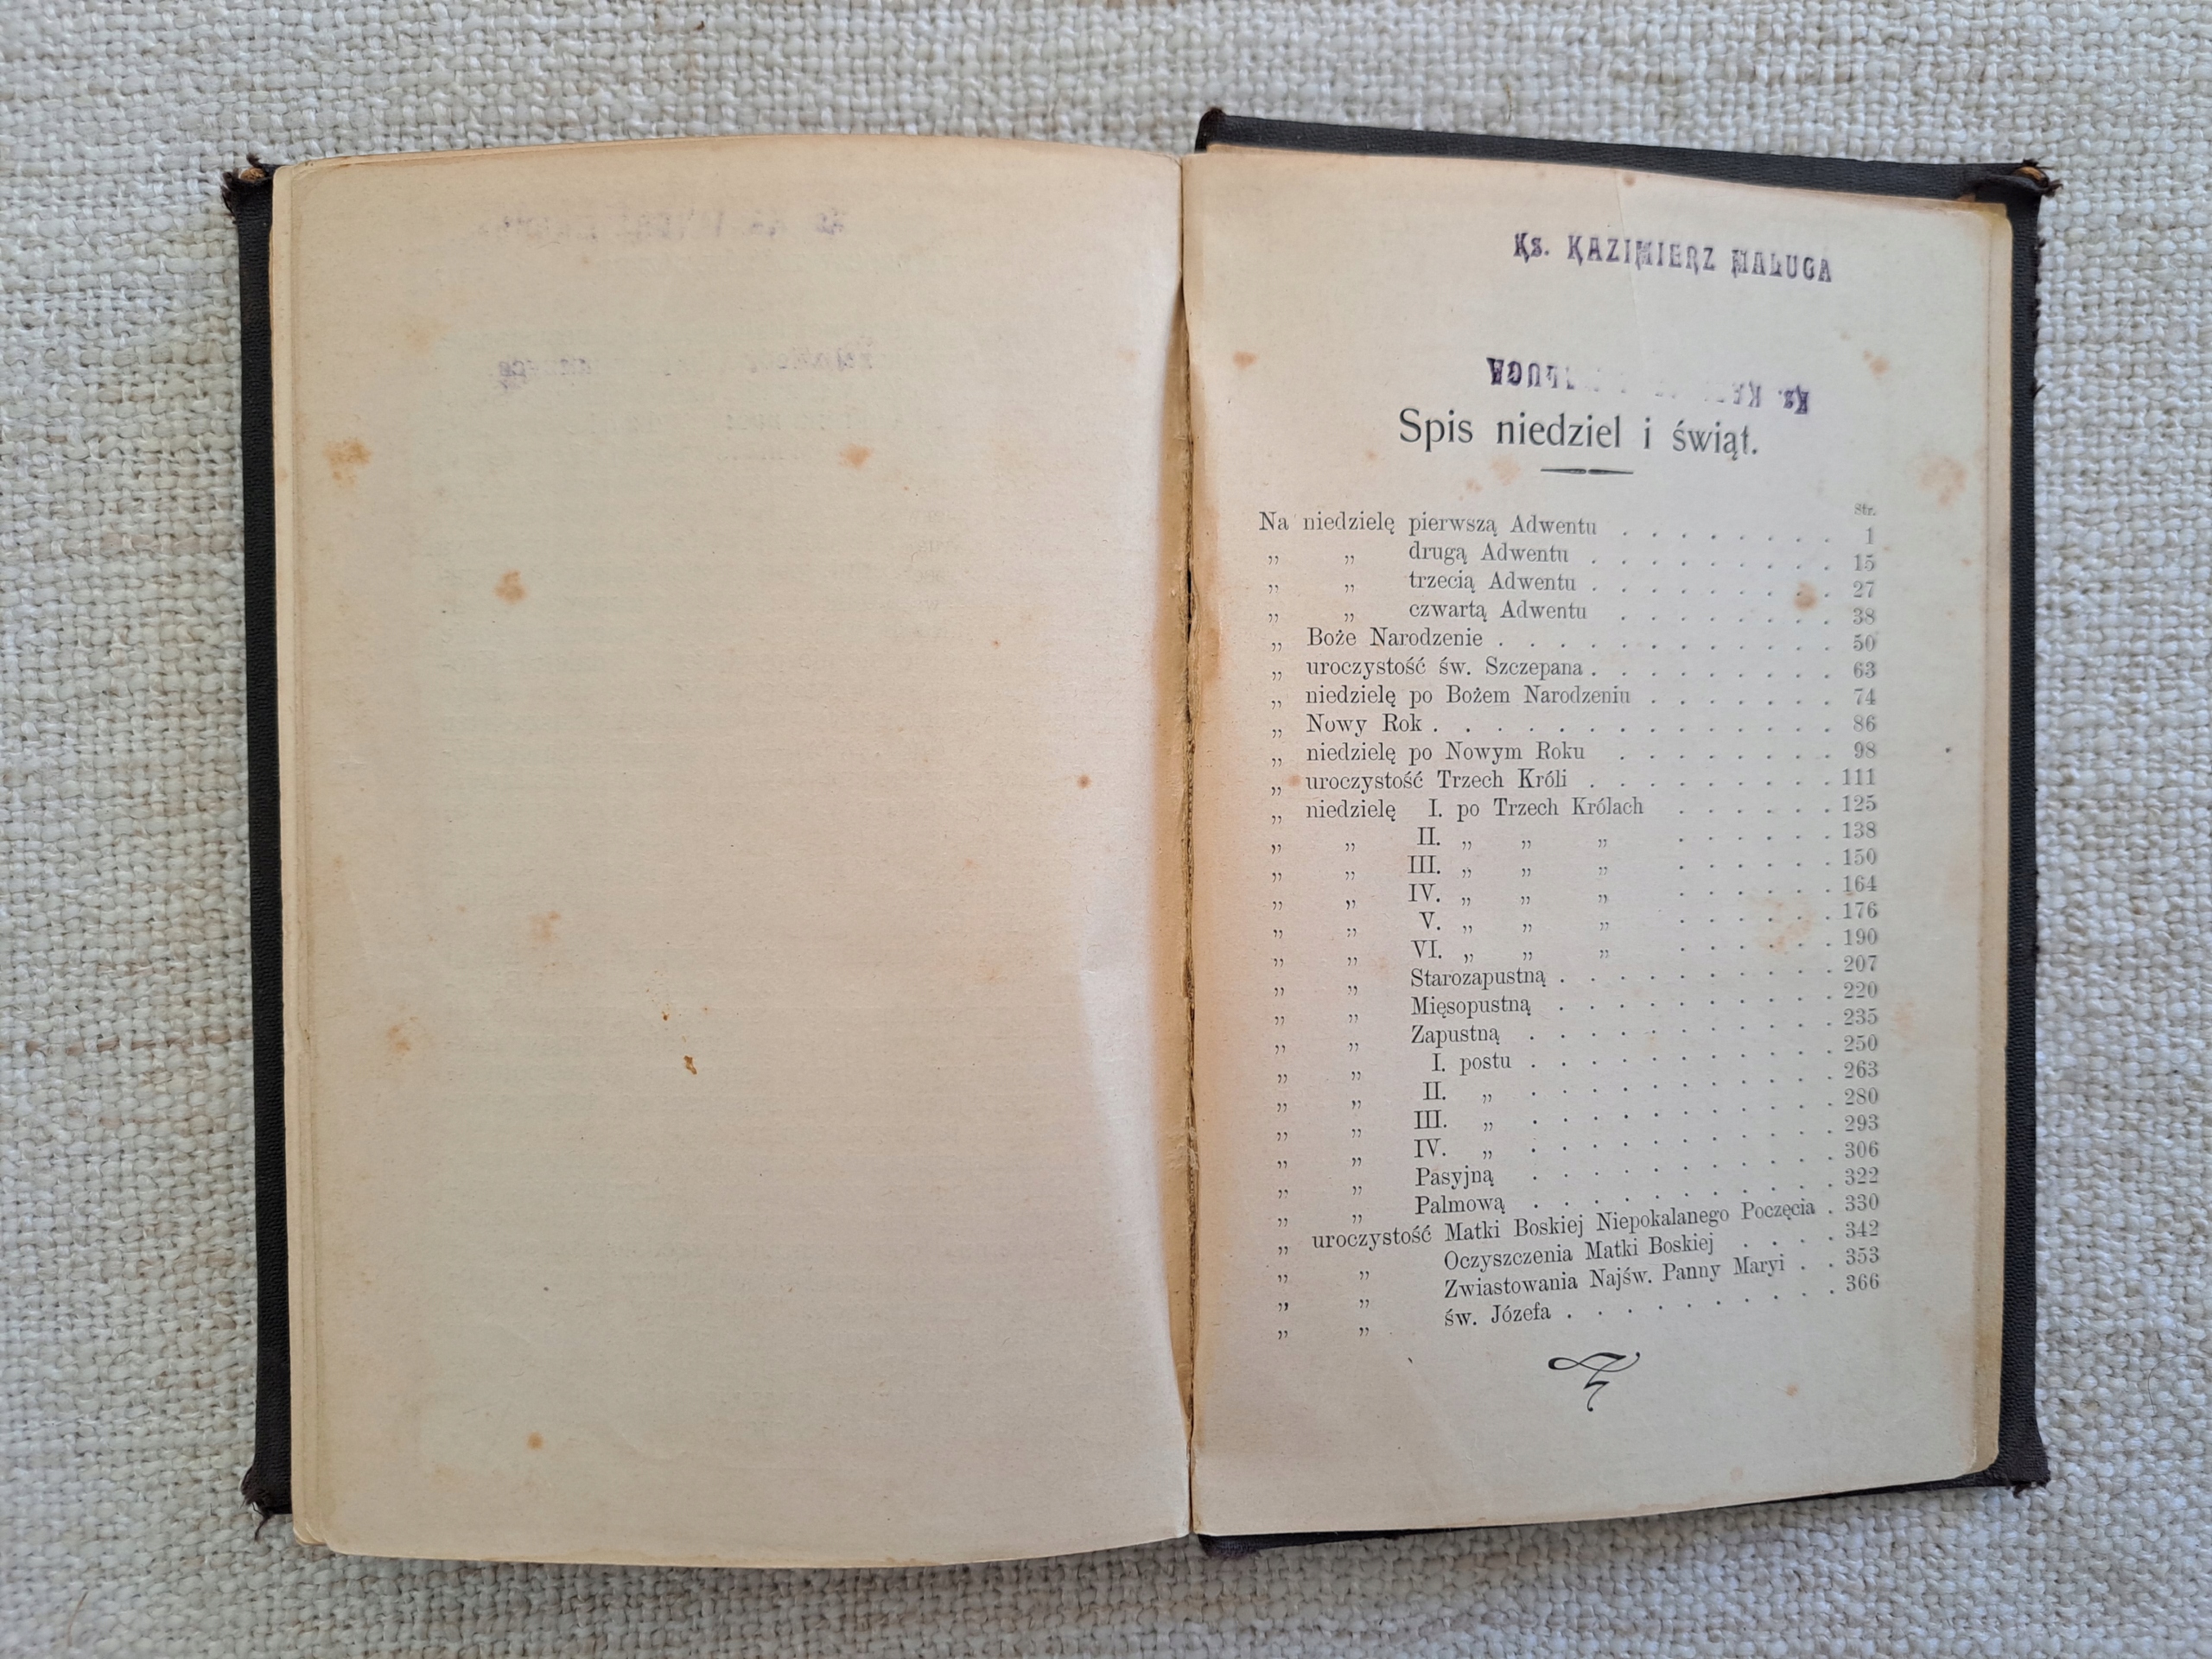 Ks. KAZIMIERZ MALUGA
Spis niedziel i świąt.
Str.
Na niedzielę pierwszą Adwentu . . . . . . . 1
„ „ drugą Adwentu . . . . . . . . 15
„ „ trzecią Adwentu . . . . . . . . 27
„ „ czwartą Adwentu . . . . . . . 38
„ Boże Narodzenie . . . . . . . . . . . 50
„ uroczystość św. Szczepana . . . . . . . . 63
„ niedzielę po Bożem Narodzeniu . . . . . . 74
„ Nowy Rok . . . . . . . . . . . . . 86
„ niedzielę po Nowym Roku . . . . . . . 98
„ uroczystość Trzech Króli . . . . . . . . 111
„ niedzielę I. po Trzech Królach . . . . . . 125
„ „ II. „ „ „ . . . . . . 138
„ „ III. „ „ „ . . . . . . 150
„ „ IV. „ „ „ . . . . . . 164
„ „ V. „ „ „ . . . . . . 176
„ „ VI. „ „ „ . . . . . . 190
„ „ Starozapustną . . . . . . . . . 207
„ „ Mięsopustną . . . . . . . . . 220
„ „ Zapustną . . . . . . . . . . 235
„ „ I. postu . . . . . . . . . . 250
„ „ II. „ . . . . . . . . . . 263
„ „ III. „ . . . . . . . . . . 280
„ „ IV. „ . . . . . . . . . . 293
„ „ Pasyjną . . . . . . . . . . 306
„ „ Palmową . . . . . . . . . . 322
„ uroczystość Matki Boskiej Niepokalanego Poczęcia . 330
„ „ Oczyszczenia Matki Boskiej . . . . 342
„ „ Zwiastowania Najśw. Panny Maryi . . 353
„ „ św. Józefa . . . . . . . . . . 366